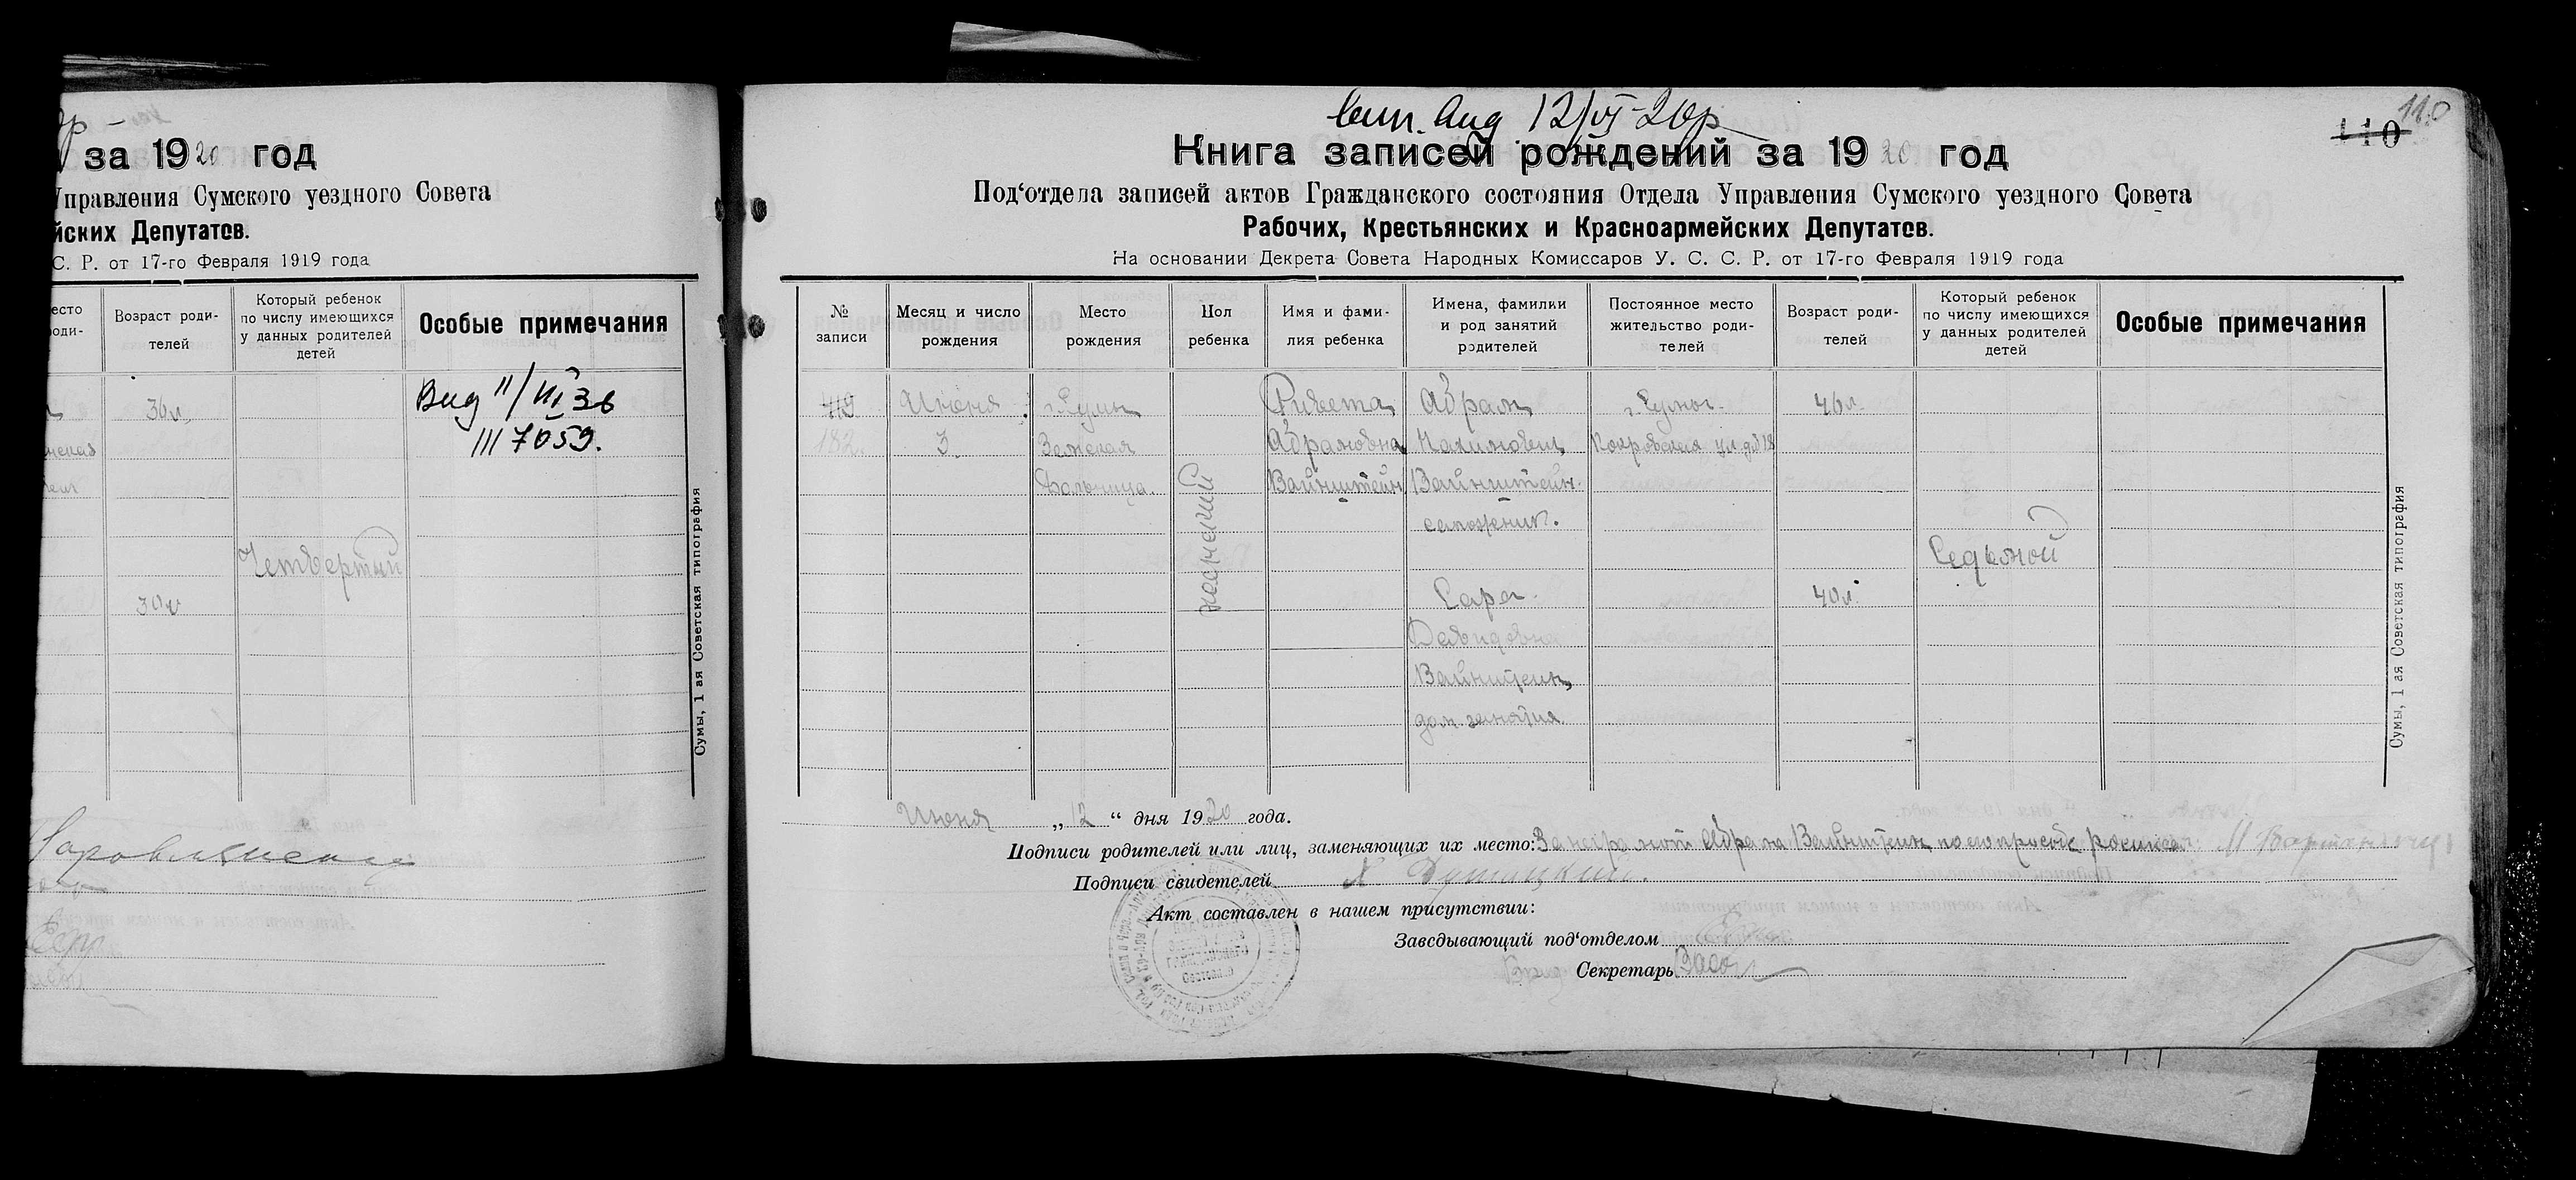 за 1920 год
Управления Сумского уездного Совета
йских Депутатов.
С. Р. от 17-го Февраля 1919 года
есто
роди-
Возраст роди-
телей
Который ребенок
по числу имеющихся
у данных родителей
детей
Особые примечания
36 л
30 л
Четвертый
Вид 11/VI 36
III 7059.
Сумы, 1 ая Советская типография
12/VI-20р
110
110
Книга записей рождений за 1920 год
Под'отдела записей актов Гражданского состояния Отдела Управления Сумского уездного Совета
Рабочих, Крестьянских и Красноармейских Депутатов.
На основании Декрета Совета Народных Комиссаров У. С. С. Р. от 17-го Февраля 1919 года
№
записи
Месяц и число
рождения
Место
рождения
Пол
ребенка
Имя и фами-
лия ребенка
Имена, фамилии
и род занятий
родителей
Постоянное место
жительство роди-
телей
Возраст роди-
телей
Который ребенок
по числу имеющихся
у данных родителей
детей
Особые примечания
182
Июня
3.
г. Сумы
Земская
больница.
женский
Ривета
Абрамовна
Вайнштейн
Абрам
Вайнштейн.
сапожник.
Сара
Давидовна
Вайнштейн,
дом. занятия.
г. Сумы.
Покровская ул. д. № 18
46 л.
40 л.
Седьмой
Сумы, 1 ая Советская типография
Июня „12“ дня 1920 года.
Подписи родителей или лиц, заменяющих их место: За неграмотн Абрама Вайнштейн по его просьбе
Подписи свидетелей
Акт составлен в нашем присутствии:
Заведывающий под'отделом
Секретарь